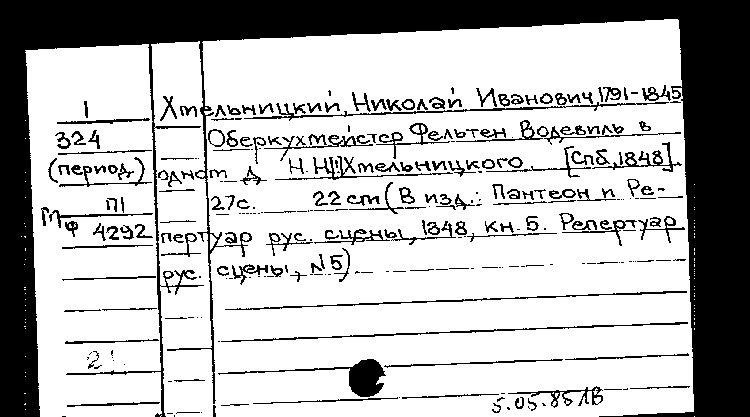 1 Хмельницкий, Николай Иванович, 1791-1845
324 Оберкухмейстер Фельтен Водевиль в
(период) одном д. Н. Н. Хмельницкого. [Спб, 1848].
П1 27с. 22 cm (В изд.: Пантеон и Ре-
Мф 4292 пертуар рус. сцены, 1848, кн. 5. Репертуар
рус. сцены, N 5)
21
5.05.85